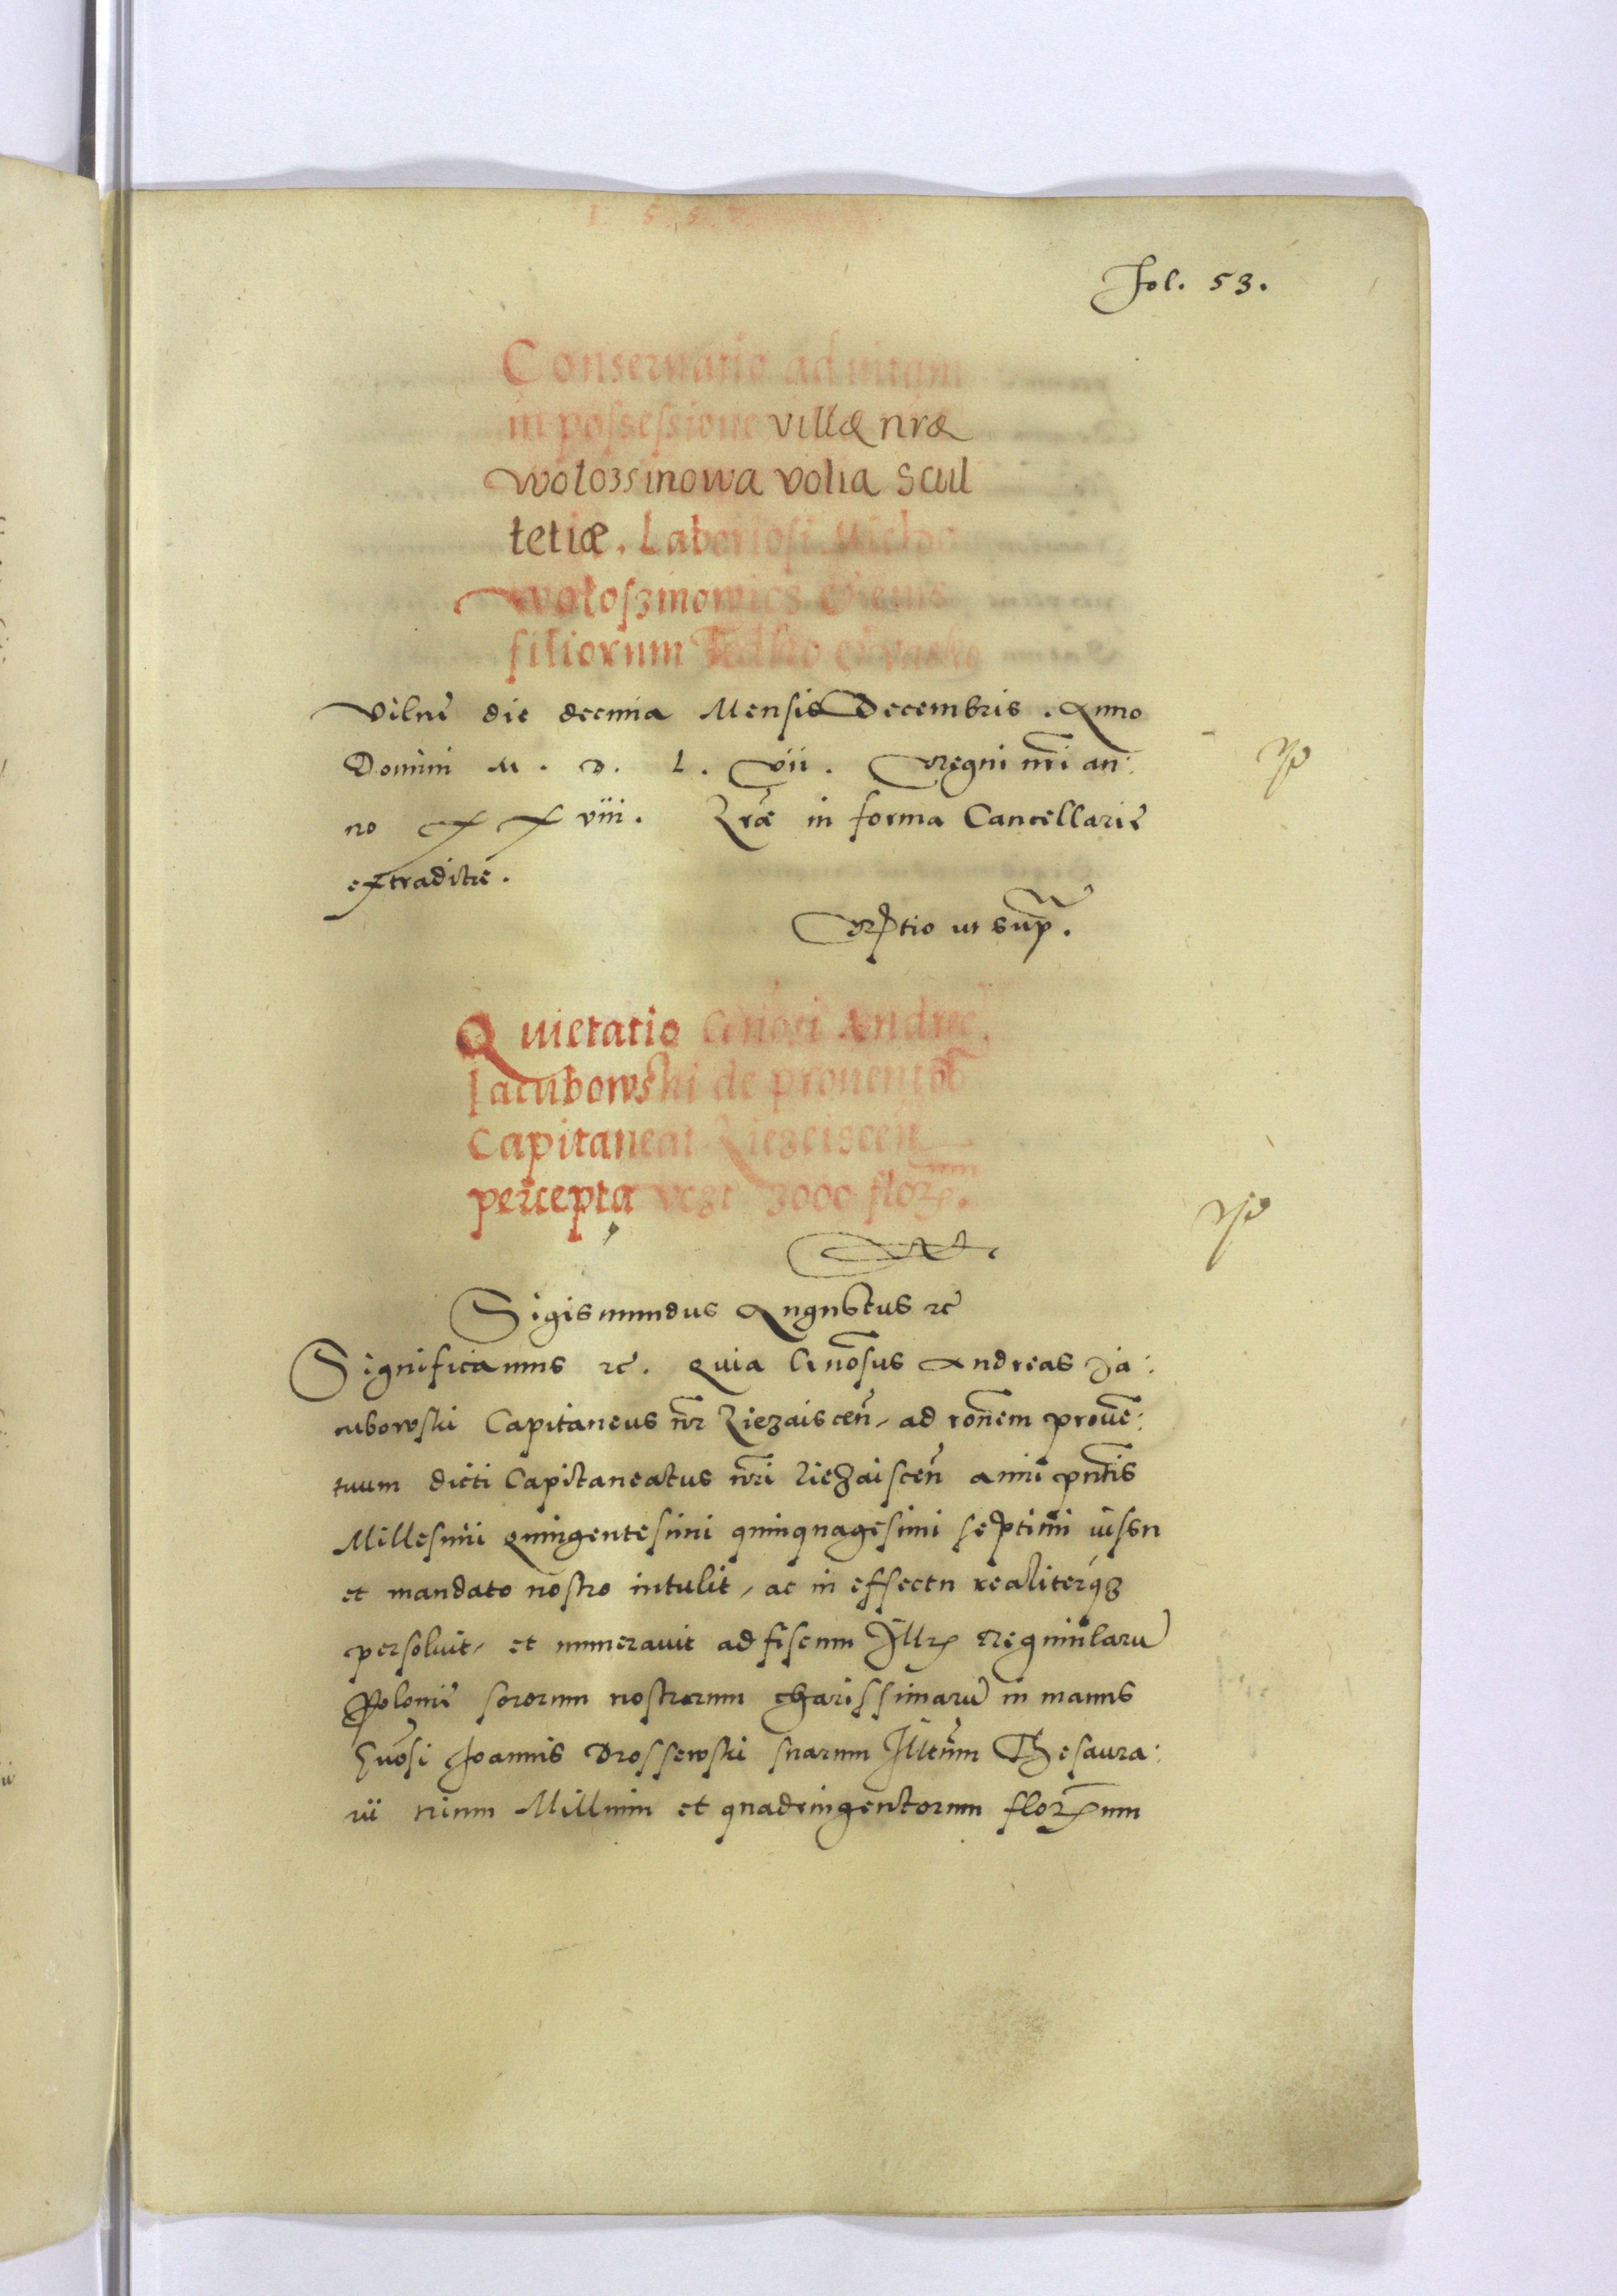 1. 5. 5.
Fol. 53.
Conseruatio ad uitam
in possessione villæ nræ
wolozsinowa volia Scul
tetiæ. Laboriosi
wołoszinowicz
filiorum Fedko
Vilnę die decima Mensis Decembris. Anno
Domini M. D. L. vii. Regni nri an:
no X X viii. Lræ in forma Cancellarię
extraditę.
Rptio ut sup.
Quietatio Gnosi Andreę
Iacubowski de prouentbs
Capitaneat
percepta 3000 flor.
Sigismundus Augustus rc
Significamus rc. Quia Gnosus Andreas Ja:
cubowski Capitaneus nr Riezaiscen, ad ronem proue:
tuum dicti Capitaneatus nri Riezaiscen anni pntis
Millesimi Quingentesimi quinquagesimi septimi iussu
et mandato nostro intulit, ac in effectu realiterq3
persoluit, et numerauit ad fiscum Illr Reginularu
Polonię sororum nostrarum charissimaru in manus
Gnosi Joannis Drossewski suarum Illtum Thesaura:
rii trium Millium et quadringentorum florum